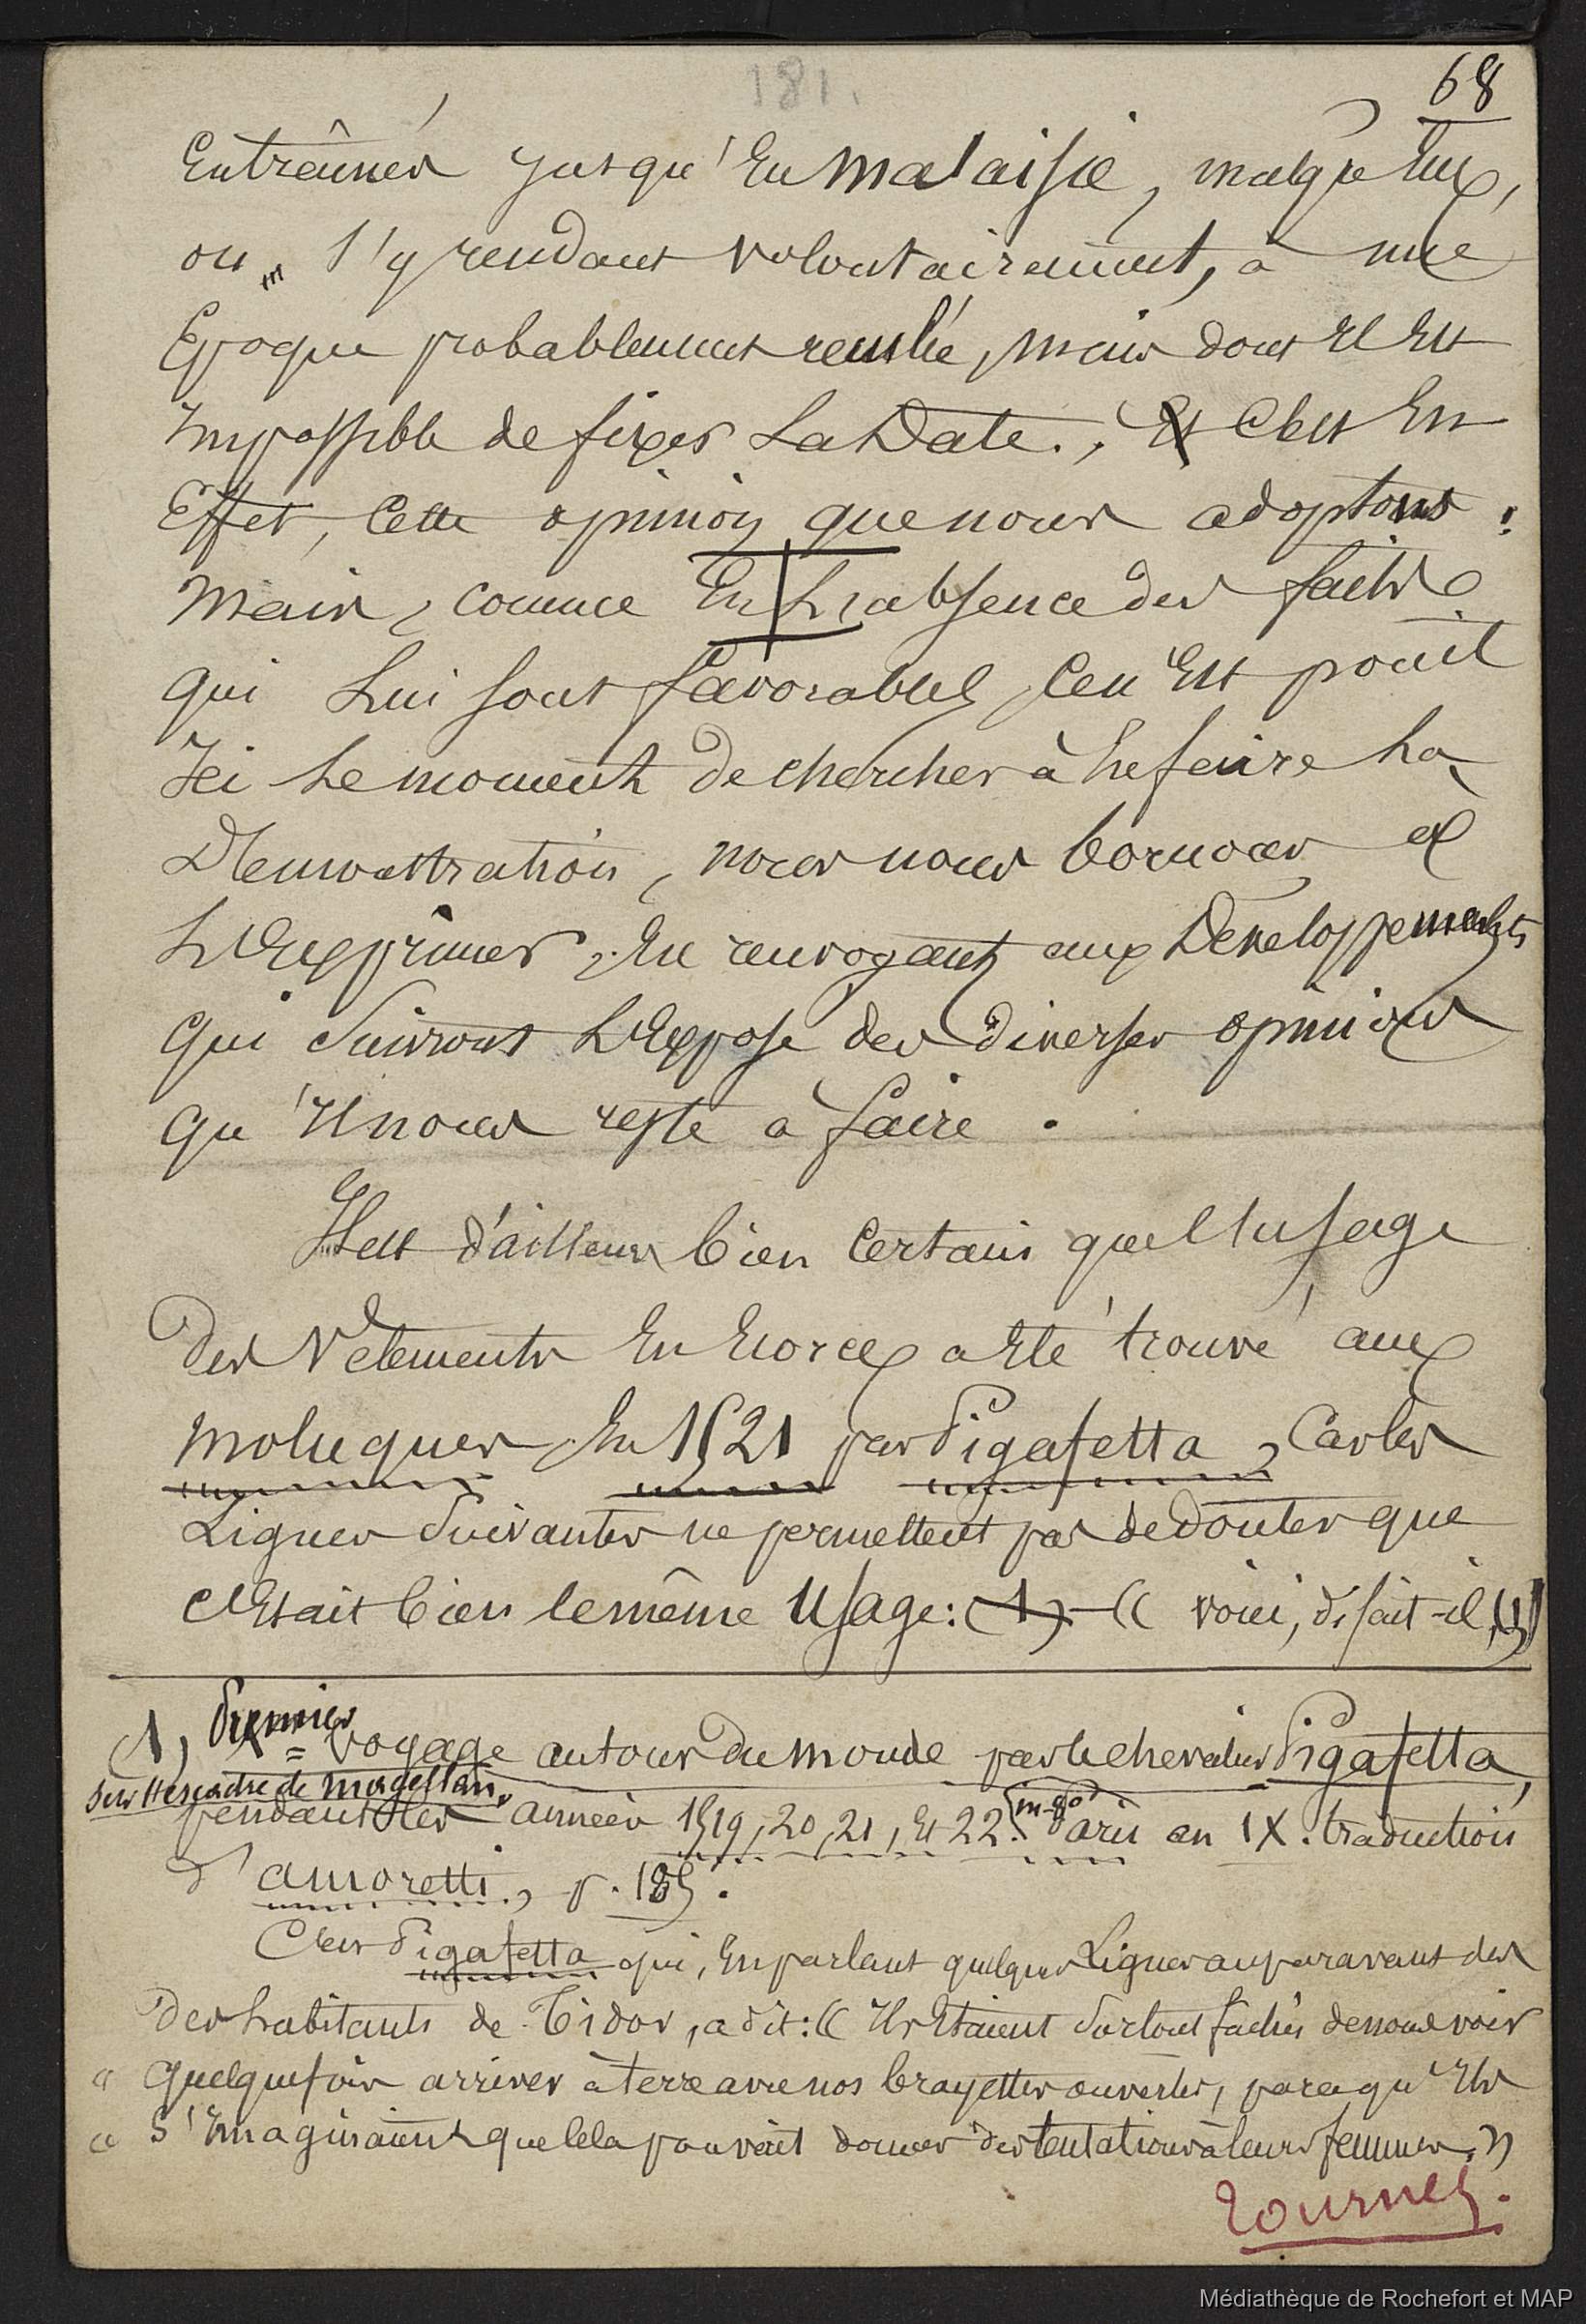 181.
68
Entraînés jusqu'en Malaisie, malgré eux,
ou s'y rendant volontairement, à une
Époque probablement reculée, mais dont il est
impossible de fixer la Date. ; Et C'est en
Effet, cette opinion que nous adoptons :
Mais, comme en L'absence des faits
qui lui sont favorables, ce n'est point
ici le moment de chercher à le faire la
Démonstration, nous nous bornons à
L'Exprimer, en renvoyant aux Développements
qui suivront L'Exposé des diverses opinions
qu'il nous reste à faire .
Il est d'ailleurs bien certain que l'usage
des Vêtements en Écorces a été trouvé aux
Moluques, en 1521 par Pigafetta, Car les
Lignes suivantes ne permettent pas de douter que
c'était bien le même usage : (1) « voici, disait-il, (1)
(1) Premier
= voyage autour du monde par le chevalier Pigafetta,
sur l'escadre de Magellan,
pendant les années 1519, 20, 21, et 22. in-8° Paris an IX. traduction
d'amoretti, p. 185.
C'est Pigafetta qui, en parlant quelques Lignes auparavant des
des habitants de Tidor, a dit : « ils étaient surtout fachés de nous voir
« quelquefois arriver à terre avec nos brayettes ouvertes, parcequ'ils
« s'imaginaient que cela pouvait donner des tentations à leurs femmes. »
Tournez.
Médiathèque de Rochefort et MAP